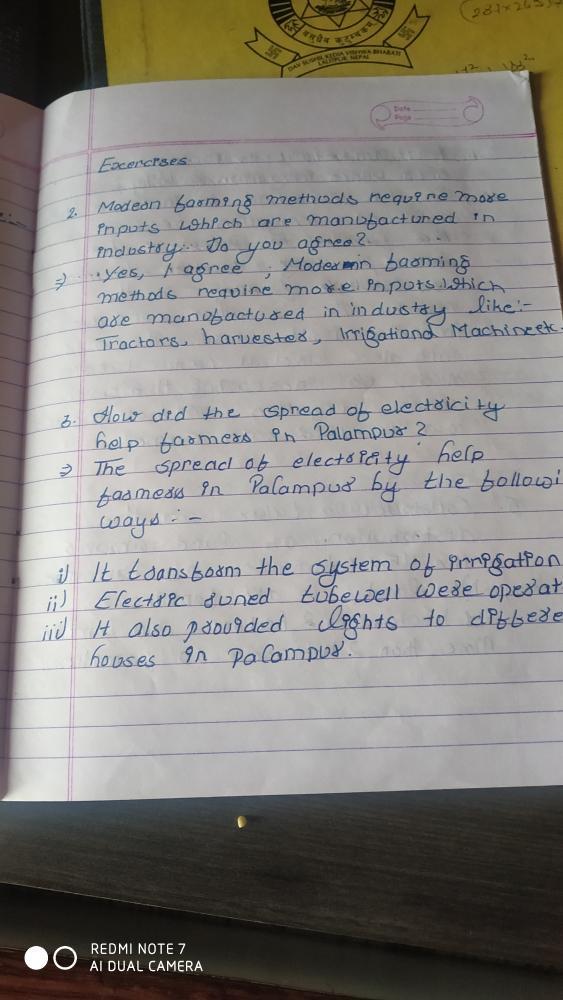 (281×
वसुधैव कुटुम्बकम्
DAV SUSHIL KEDIA VISHWA BHARATI
LALITPUR, NEPAL
Date
Page
Excercises
2. Modean farming methods require more
inputs which are manufactured in
industry. Do you agree?
⇒ Yes, I agree; Modern farming
methods require more inputs which
are manufactured in industry like:-
Tractors, harvester, Irrigationd Machine etc.
3. How did the spread of electricity
help farmers in Palampur?
⇒ The spread of electricity help
farmers in Palampur by the followi
ways:-
i) It transform the system of irrigation
ii) Electric runed tubewell were operat
iii) It also provided lights to differe
houses in Palampur.
REDMI NOTE 7
AI DUAL CAMERA